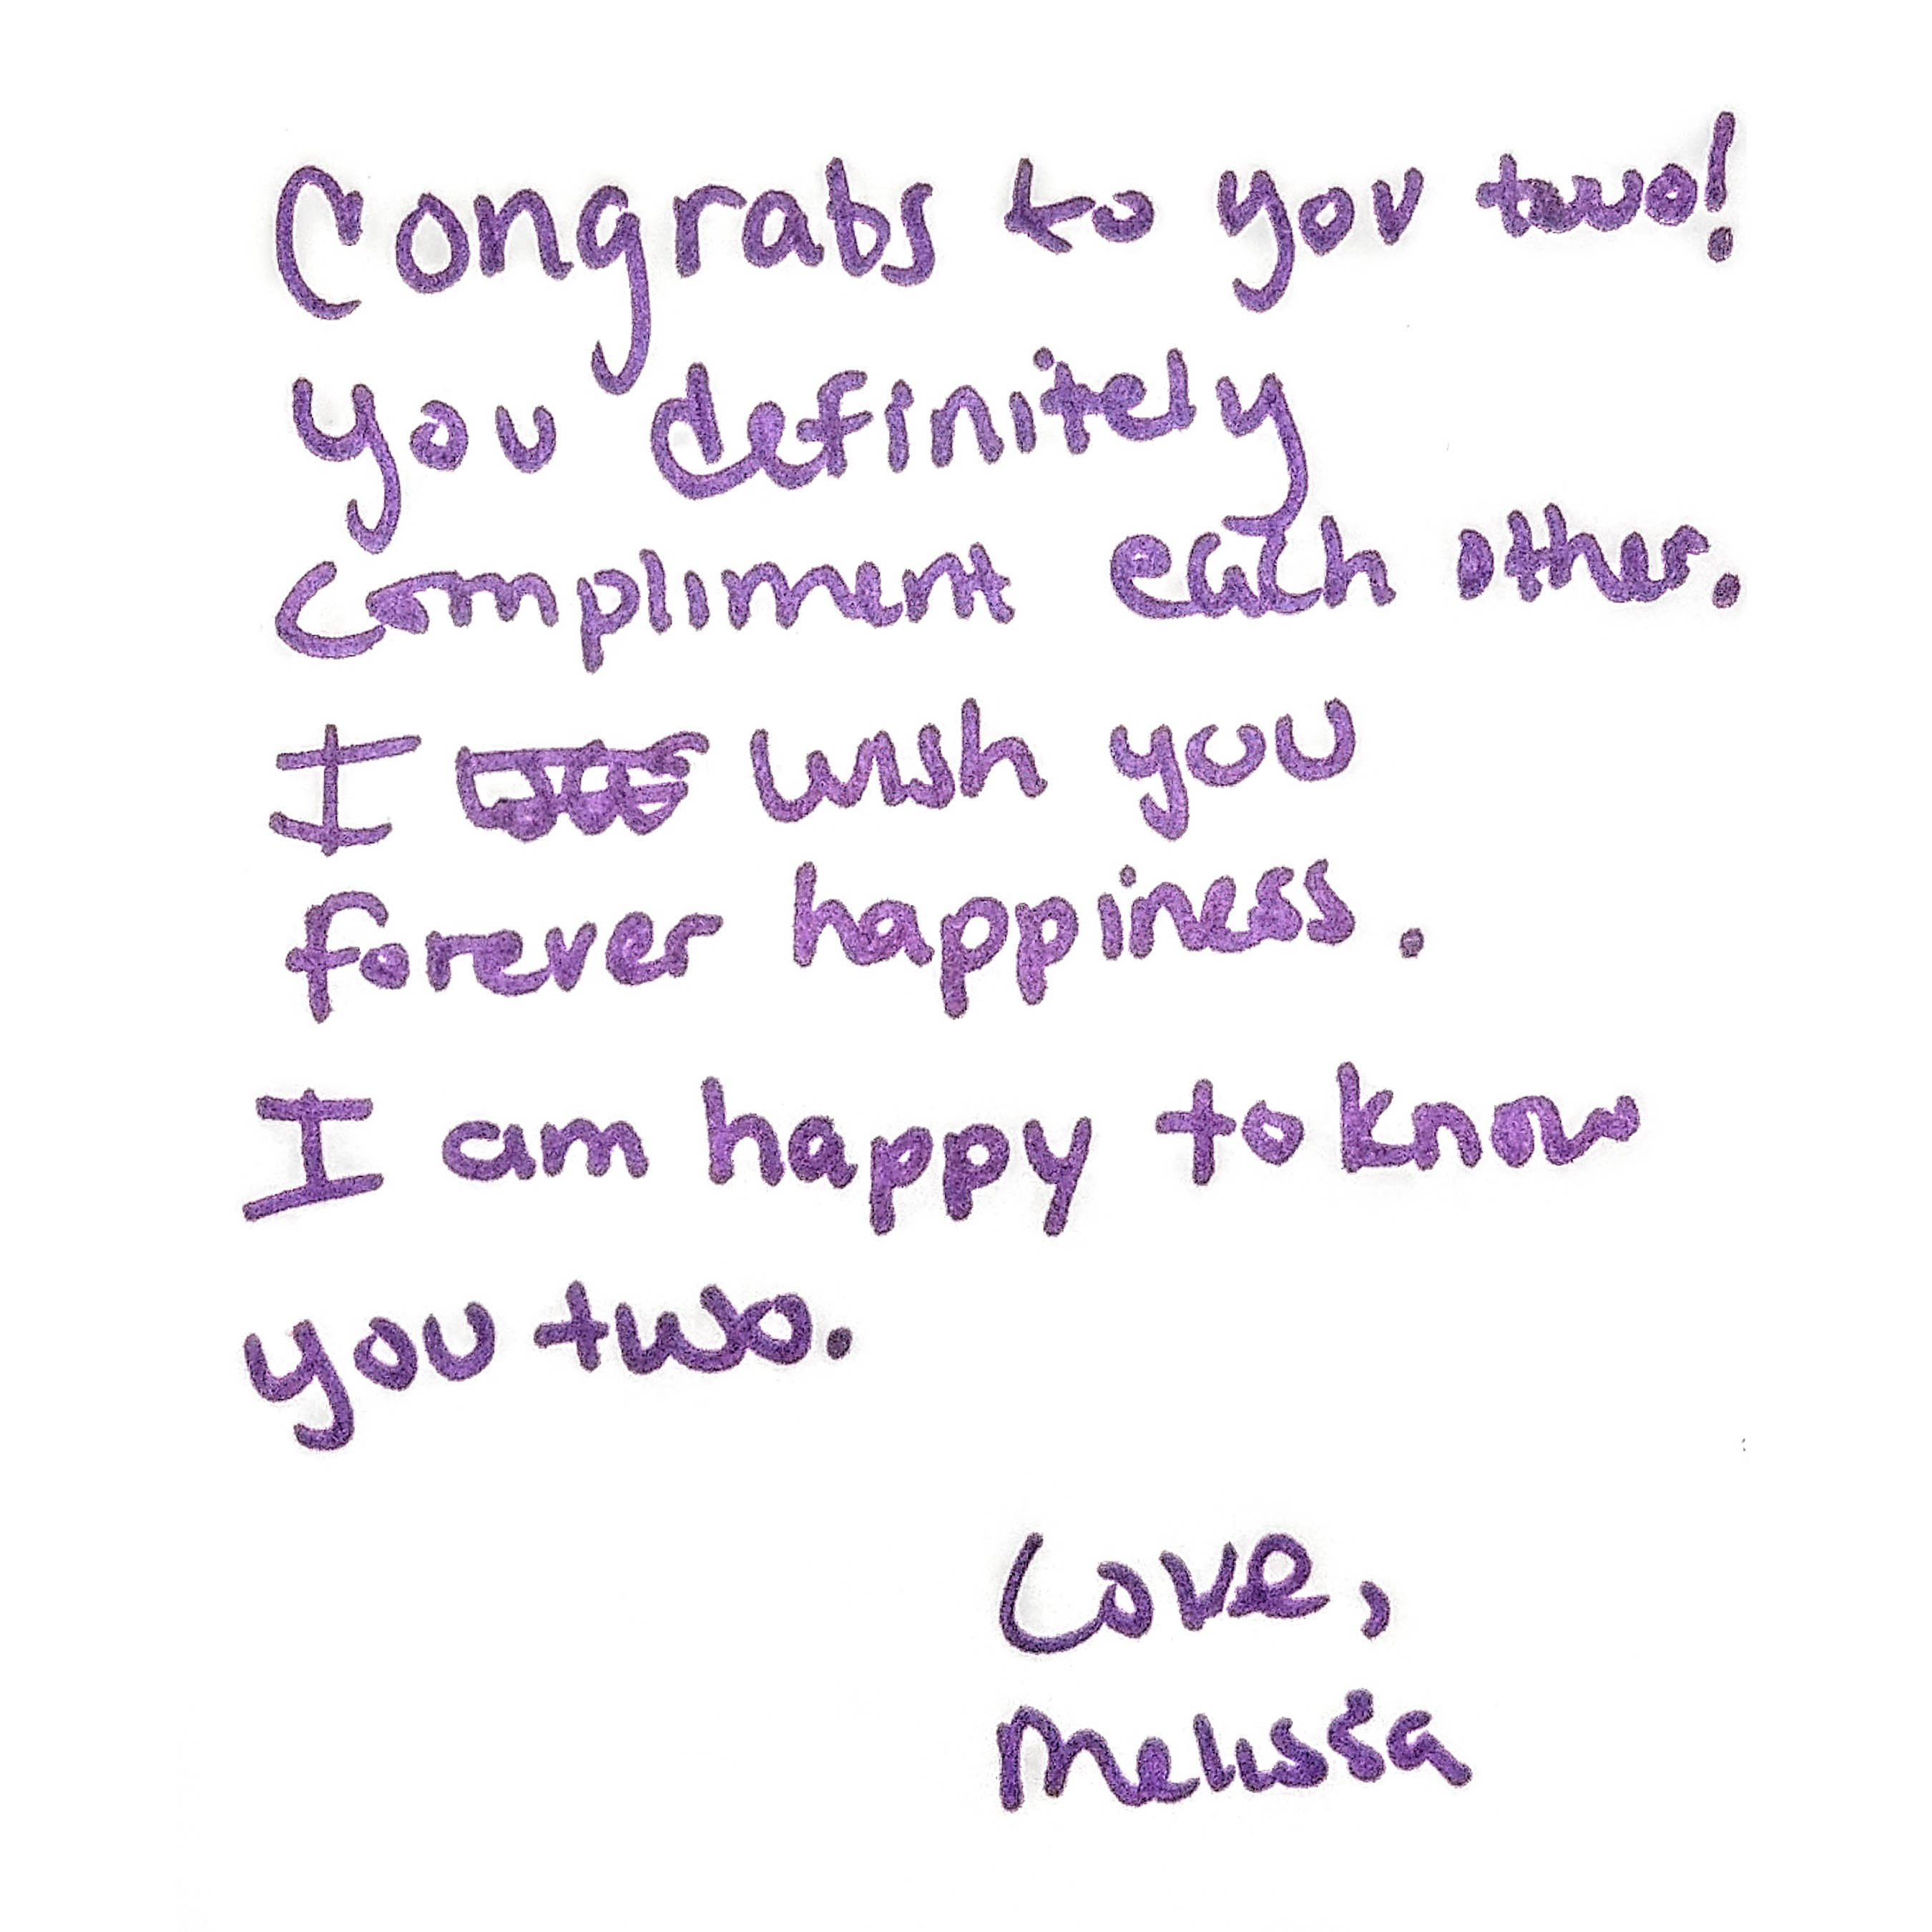 Congrats to you two!
You definitely
compliment each other.
I wish you
forever happiness.
I am happy to know
you two.
Love,
Melissa